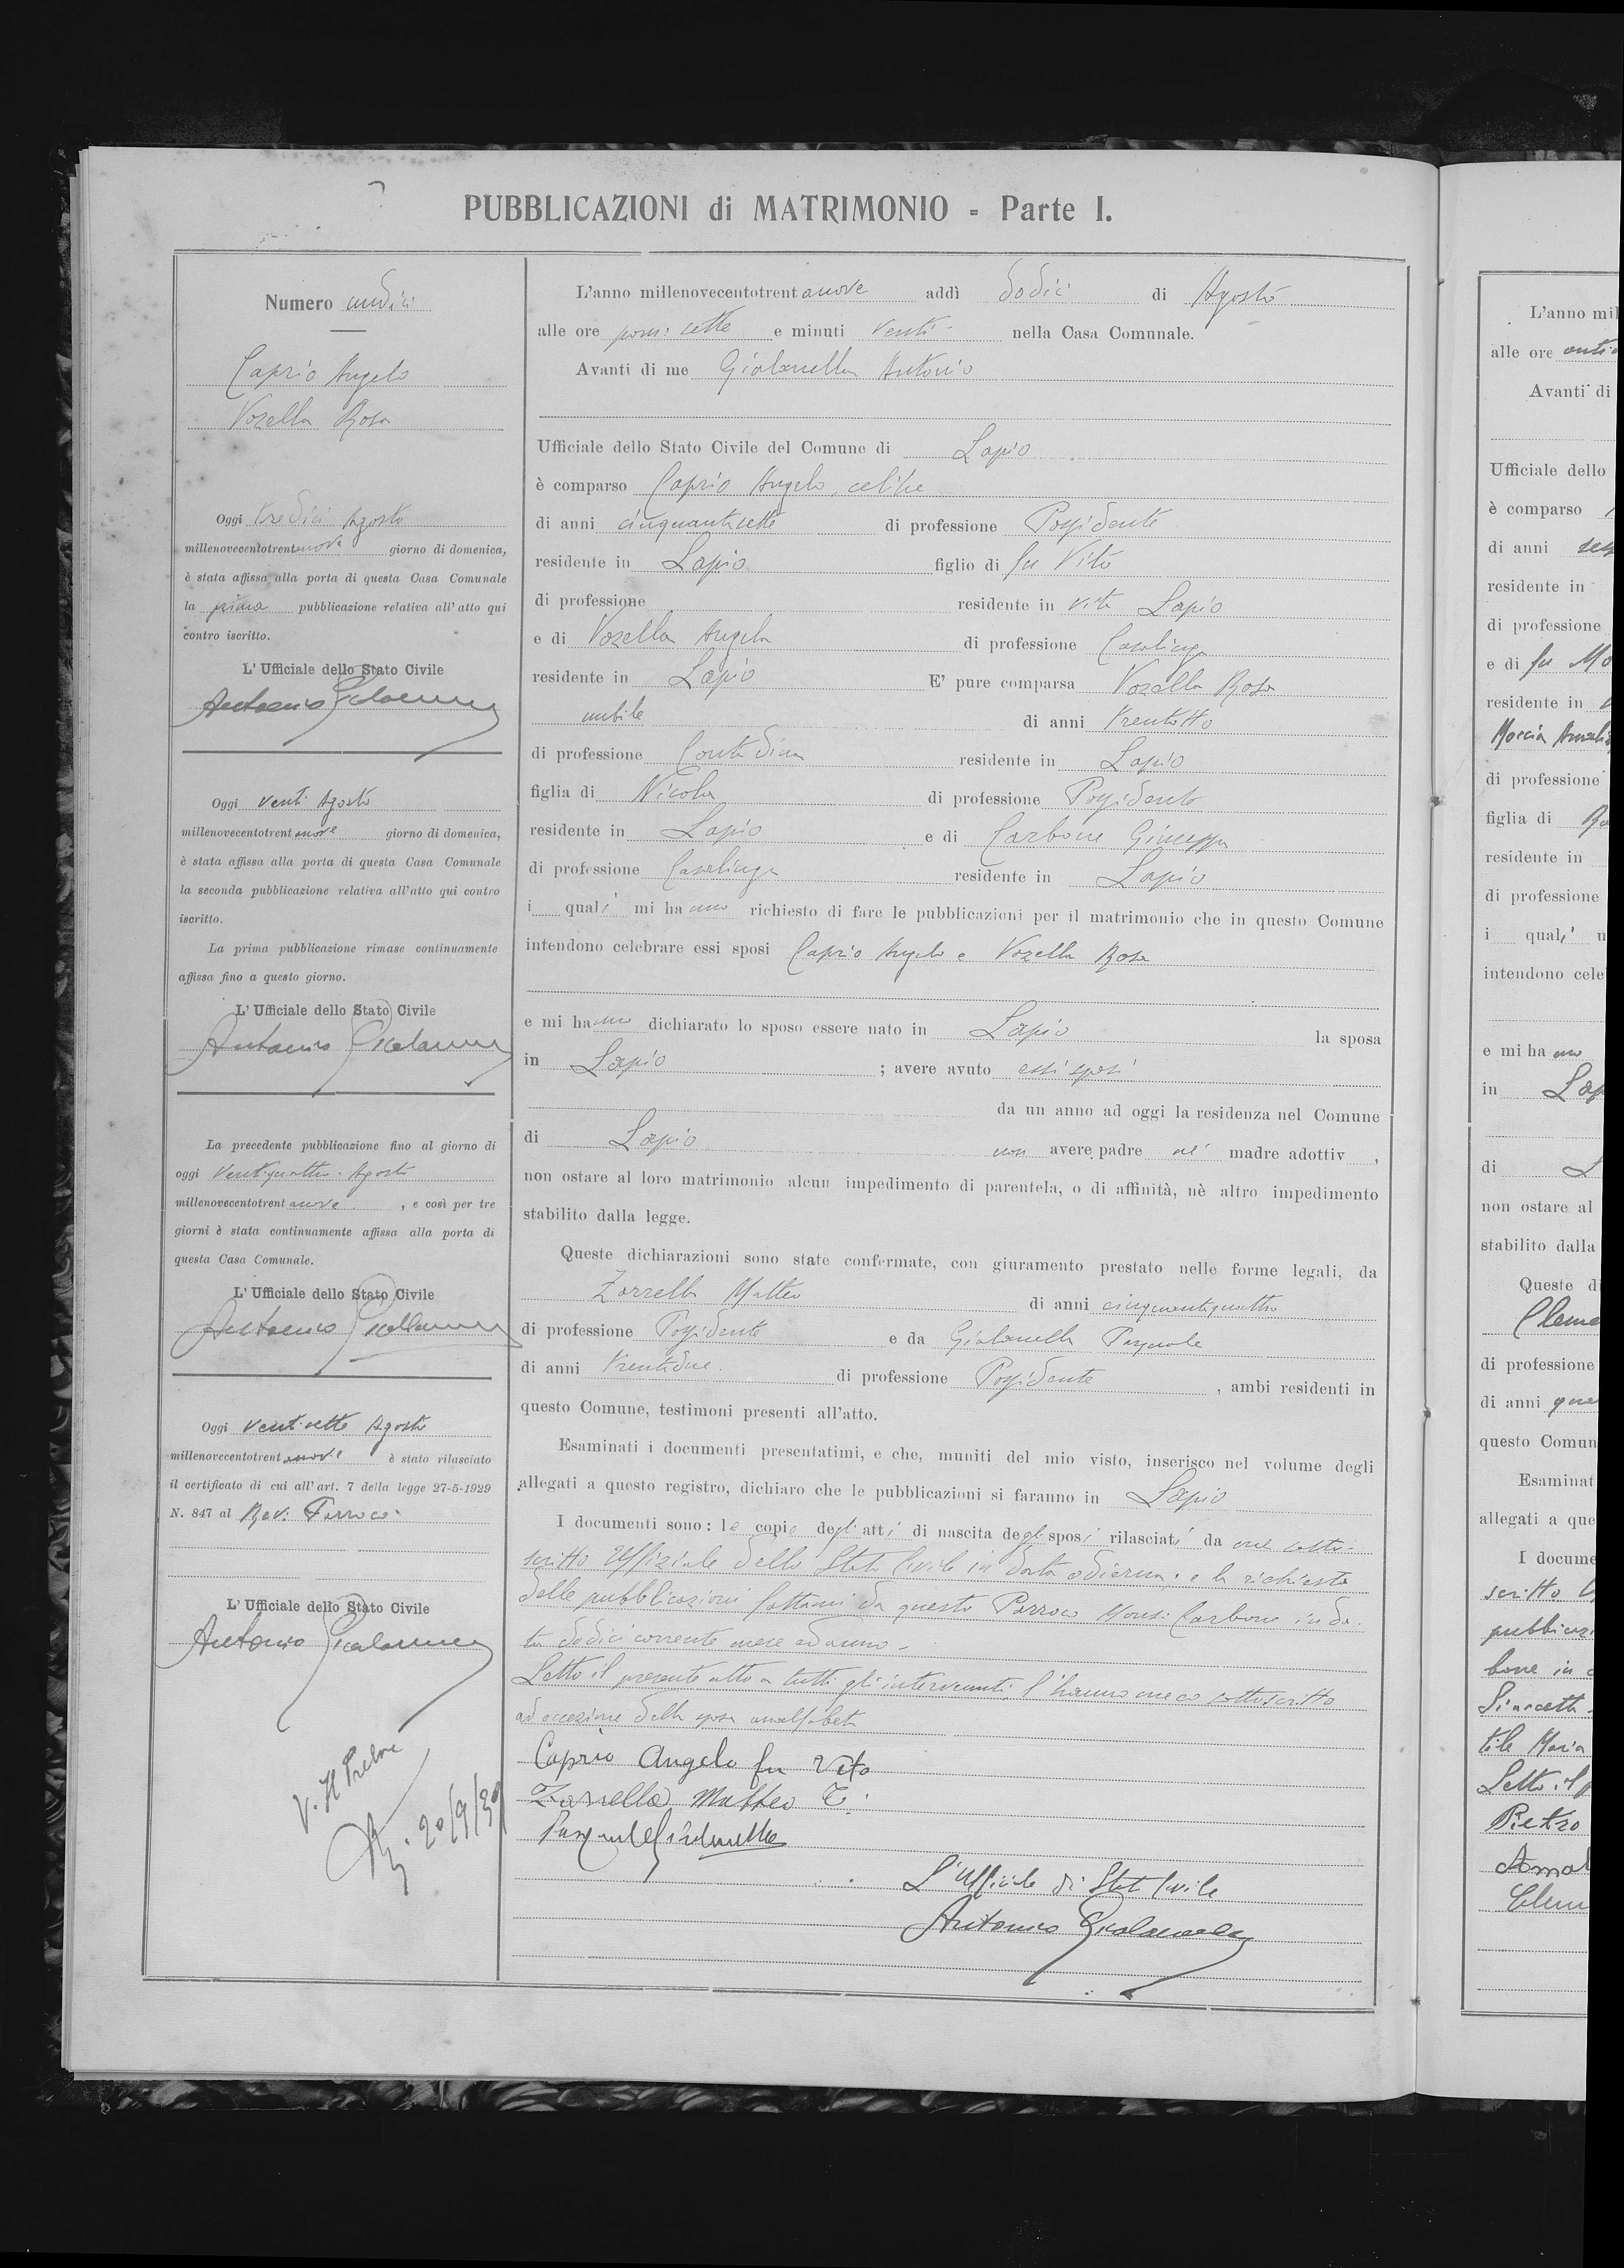 PUBBLICAZIONI di MATRIMONIO - Parte I.
Numero undici
Caprio Angelo
Vozella Rosa
Oggi tredici Agosto
millenovecentotrentanove giorno di domenica,
è stata affissa alla porta di questa Casa Comunale
la prima pubblicazione relativa all'atto qui
contro iscritto.
L'Ufficiale dello Stato Civile
Antonio
Oggi venti Agosto
millenovecentotrentanove giorno di domenica,
è stata affissa alla porta di questa Casa Comunale
la seconda pubblicazione relativa all'atto qui contro
iscritto.
La prima pubblicazione rimase continuamente
affissa fino a questo giorno.
L'Ufficiale dello Stato Civile
Antonio
La precedente pubblicazione fino al giorno di
oggi ventiquattro Agosto
millenovecentotrentanove, e così per tre
giorni è stata continuamente affissa alla porta di
questa Casa Comunale.
L'Ufficiale dello Stato Civile
Antonio
Oggi ventisette Agosto
millenovecentotrentanove è stato rilasciato
il certificato di cui all'art. 7 della legge 27-5-1929
N. 847 al Rev: Parroco
L'Ufficiale dello Stato Civile
Antonio
V. Il Pretore
20/9/39
L'anno millenovecentotrentanove addì dodici di Agosto
alle ore pom: sette e minuti venti nella Casa Comunale.
Avanti di me Giolanella Antonio
Ufficiale dello Stato Civile del Comune di Lapio
è comparso Caprio Angelo, celibe
di anni cinquantasette di professione Possidente
residente in Lapio figlio di fu Vito
di professione residente in vita Lapio
e di Vozella Angela di professione Casalinga
residente in Lapio E' pure comparsa Vozella Rosa
nubile di anni trentotto
di professione Contadina residente in Lapio
figlia di Nicola di professione Possidente
residente in Lapio e di Carbone Giuseppa
di professione Casalinga residente in Lapio
i quali mi hanno richiesto di fare le pubblicazioni per il matrimonio che in questo Comune
intendono celebrare essi sposi Caprio Angelo e Vozella Rosa
e mi hanno dichiarato lo sposo essere nato in Lapio la sposa
in Lapio; avere avuto essi sposi
da un anno ad oggi la residenza nel Comune
di Lapio non avere padre nè madre adottiv ,
non ostare al loro matrimonio alcun impedimento di parentela, o di affinità, nè altro impedimento
stabilito dalla legge.
Queste dichiarazioni sono state confermate, con giuramento prestato nelle forme legali, da
Zarrella Matteo di anni cinquantaquattro
di professione Possidente e da Giolanella Pasquale
di anni trentadue di professione Possidente, ambi residenti in
questo Comune, testimoni presenti all'atto.
Esaminati i documenti presentatimi, e che, muniti del mio visto, inserisco nel volume degli
allegati a questo registro, dichiaro che le pubblicazioni si faranno in Lapio
I documenti sono: le copie degli atti di nascita degli sposi rilasciati da me sotto-
scritto Uffiziale dello Stato Civile in data odierna; e la richiesta
delle pubblicazioni fattami da questo Parroco Mons: Carbone in da-
ta dodici corrente mese ed anno.
Letto il presente atto a tutti gli intervenuti, l'hanno meco sottoscritto
ad eccezione della sposa analfabeta
Caprio Angelo fu Vito
Zarrella Matteo T.
Pasquale Giolanella
L'Ufficiale di Stato Civile
Antonio Giolanella
L'anno mil
alle ore anti
Avanti di
Ufficiale dello
è comparso
di anni
residente in
di professione
e di fu Mo
residente in
Moccia Amalia
di professione
figlia di
residente in
di professione
i quali
intendono cele
e mi hanno
in Lap
di L
non ostare al
stabilito dalla
Queste di
Cleme
di professione
di anni
questo Comun
Esaminat
allegati a que
I docume
scritto U
pubblicaz
bone in
tile Maria
Letto il
Pietro
Amal
Clem